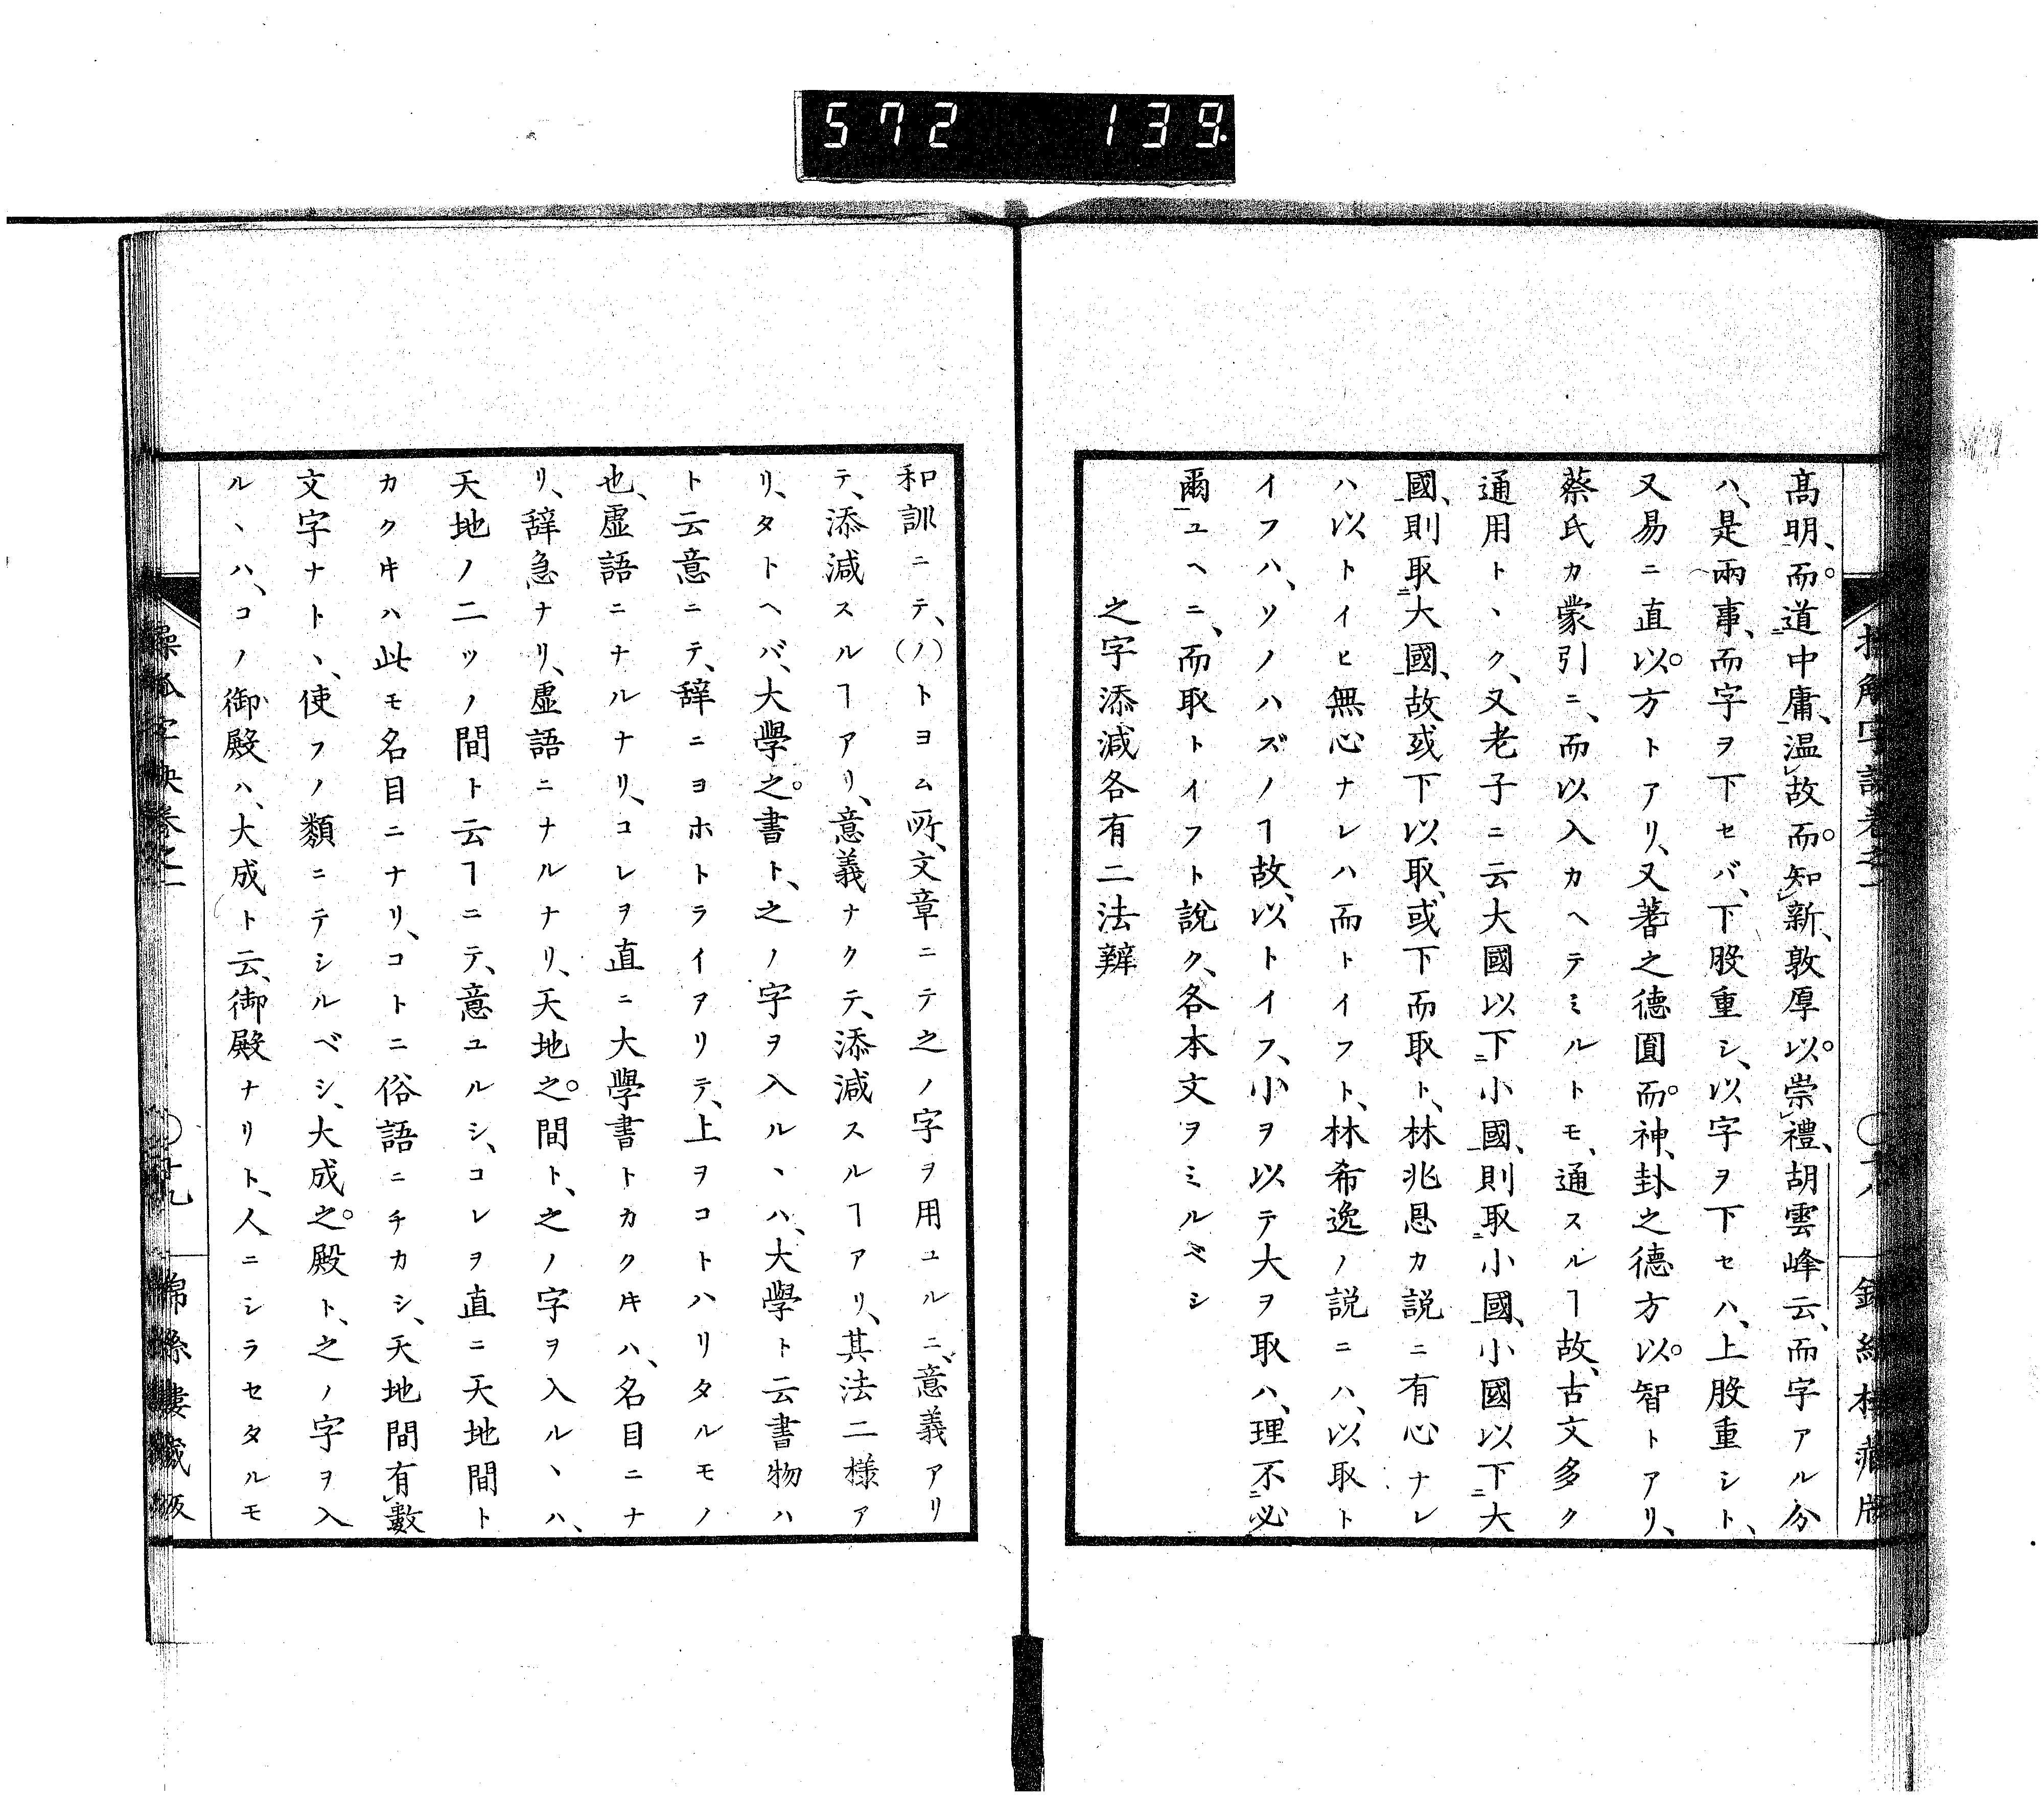 572 139.
髙明、而道中庸、温故而知新、敦厚以崇禮、胡雲峰云、而字アル分
ハ、是兩事、而字ヲ下セバ、下股重シ、以字ヲ下セハ、上股重シト、
又易ニ直以方トアリ、又蓍之德圓而神、卦之德方以智トアリ、
蔡氏カ蒙引ニ、而以入カヘテミルトモ、通スルヿ故、古文多ク
通用トヽク、又老子ニ云大國以下ニ小國、則取小國、小國以下ニ大
國、則取ニ大國、故或下以取、或下而取ト、林兆恩カ説ニ有心ナレ
ハ以トイヒ無心ナレハ而トイフト、林希逸ノ説ニハ、以取ト
イフハ、ソノハズノヿ故、以トイフ、小ヲ以テ大ヲ取ハ、理不ニ必
爾ユヘニ、而取トイフト說ク、各本文ヲミルベシ
之字添減各有二法辨
和訓ニテ、(ノ)トヨム所、文章ニテ之ノ字ヲ用ユルニ、意義アリ
テ、添減スルヿアリ、意義ナクテ、添減スルヿアリ、其法二様ア
リ、タトヘバ、大學之書ト、之ノ字ヲ入ルヽハ、大學ト云書物ハ
ト云意ニテ、辞ニヨホトライアリテ、上ヲコトハリタルモノ
也、虚語ニナルナリ、コレヲ直ニ大學書トカクキハ、名目ニナ
リ、辞急ナリ、虚語ニナルナリ、天地之間ト、之ノ字ヲ入ルヽハ、
天地ノ二ツノ間ト云ヿニテ、意ユルシ、コレヲ直ニ天地間ト
カクキハ此モ名目ニナリ、コトニ俗語ニチカシ、天地間有數
文字ナトヽ、使フノ類ニテシルベシ、大成之殿ト、之ノ字ヲ入
ルヽハ、コノ御殿ハ、大成ト云、御殿ナリト、人ニシラセタルモ
操觚字訣卷之一 〇十九 錦絲樓藏版